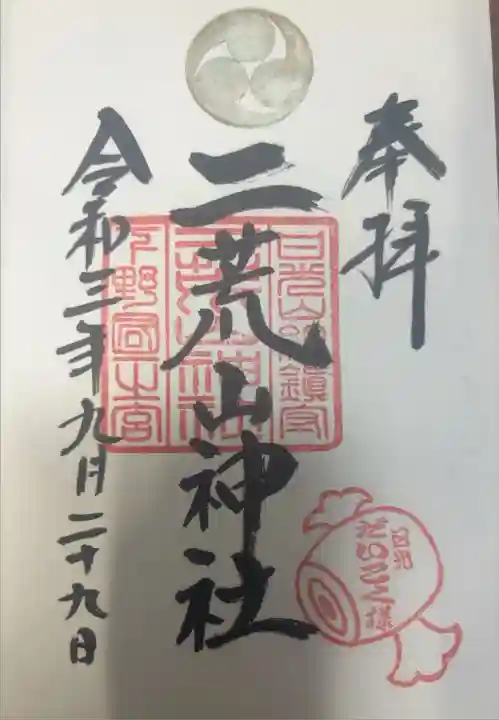 奉拝
二荒山神社
令和三年九月二十九日
日光山総鎮守
二荒山神社
下野國一之宮
日光
だいこく様